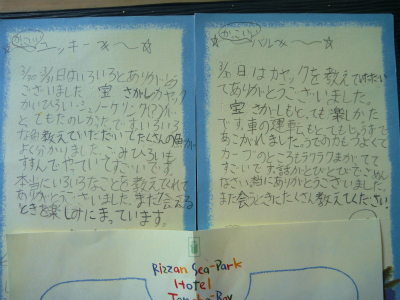 かっこいい
☆ コッキー さんへ ☆
3/30 3/31日はいろいろとありがとう
ございました 宝 さがしカヤック
かいひろい・シュノーケリング(?)が
とてもたのしかたです。いろいろ
な
教えていただいてたくさんの
よく分かりました。ごみひろいも
すすんでやっていてすごいです。
本当にいろいろなことを教えてくれて
ありがとうございました。また会える
ときを楽しみにまっています。
かっこいい
☆ ハル さんへ ☆
3/31日はカヤックを教えていただい
てありがとうございました。
宝 さがしもとても楽しかた
です。車の運転もとてもじょうずで
あこがれました。うでの力もつよくて
カーブのところもラクラクまがてて
すごいです。お話がとびとびでごめん
なさい
また会うときにたくさん教えてください!
Rizzan Sea-Park
Hotel
Tancha-Bay